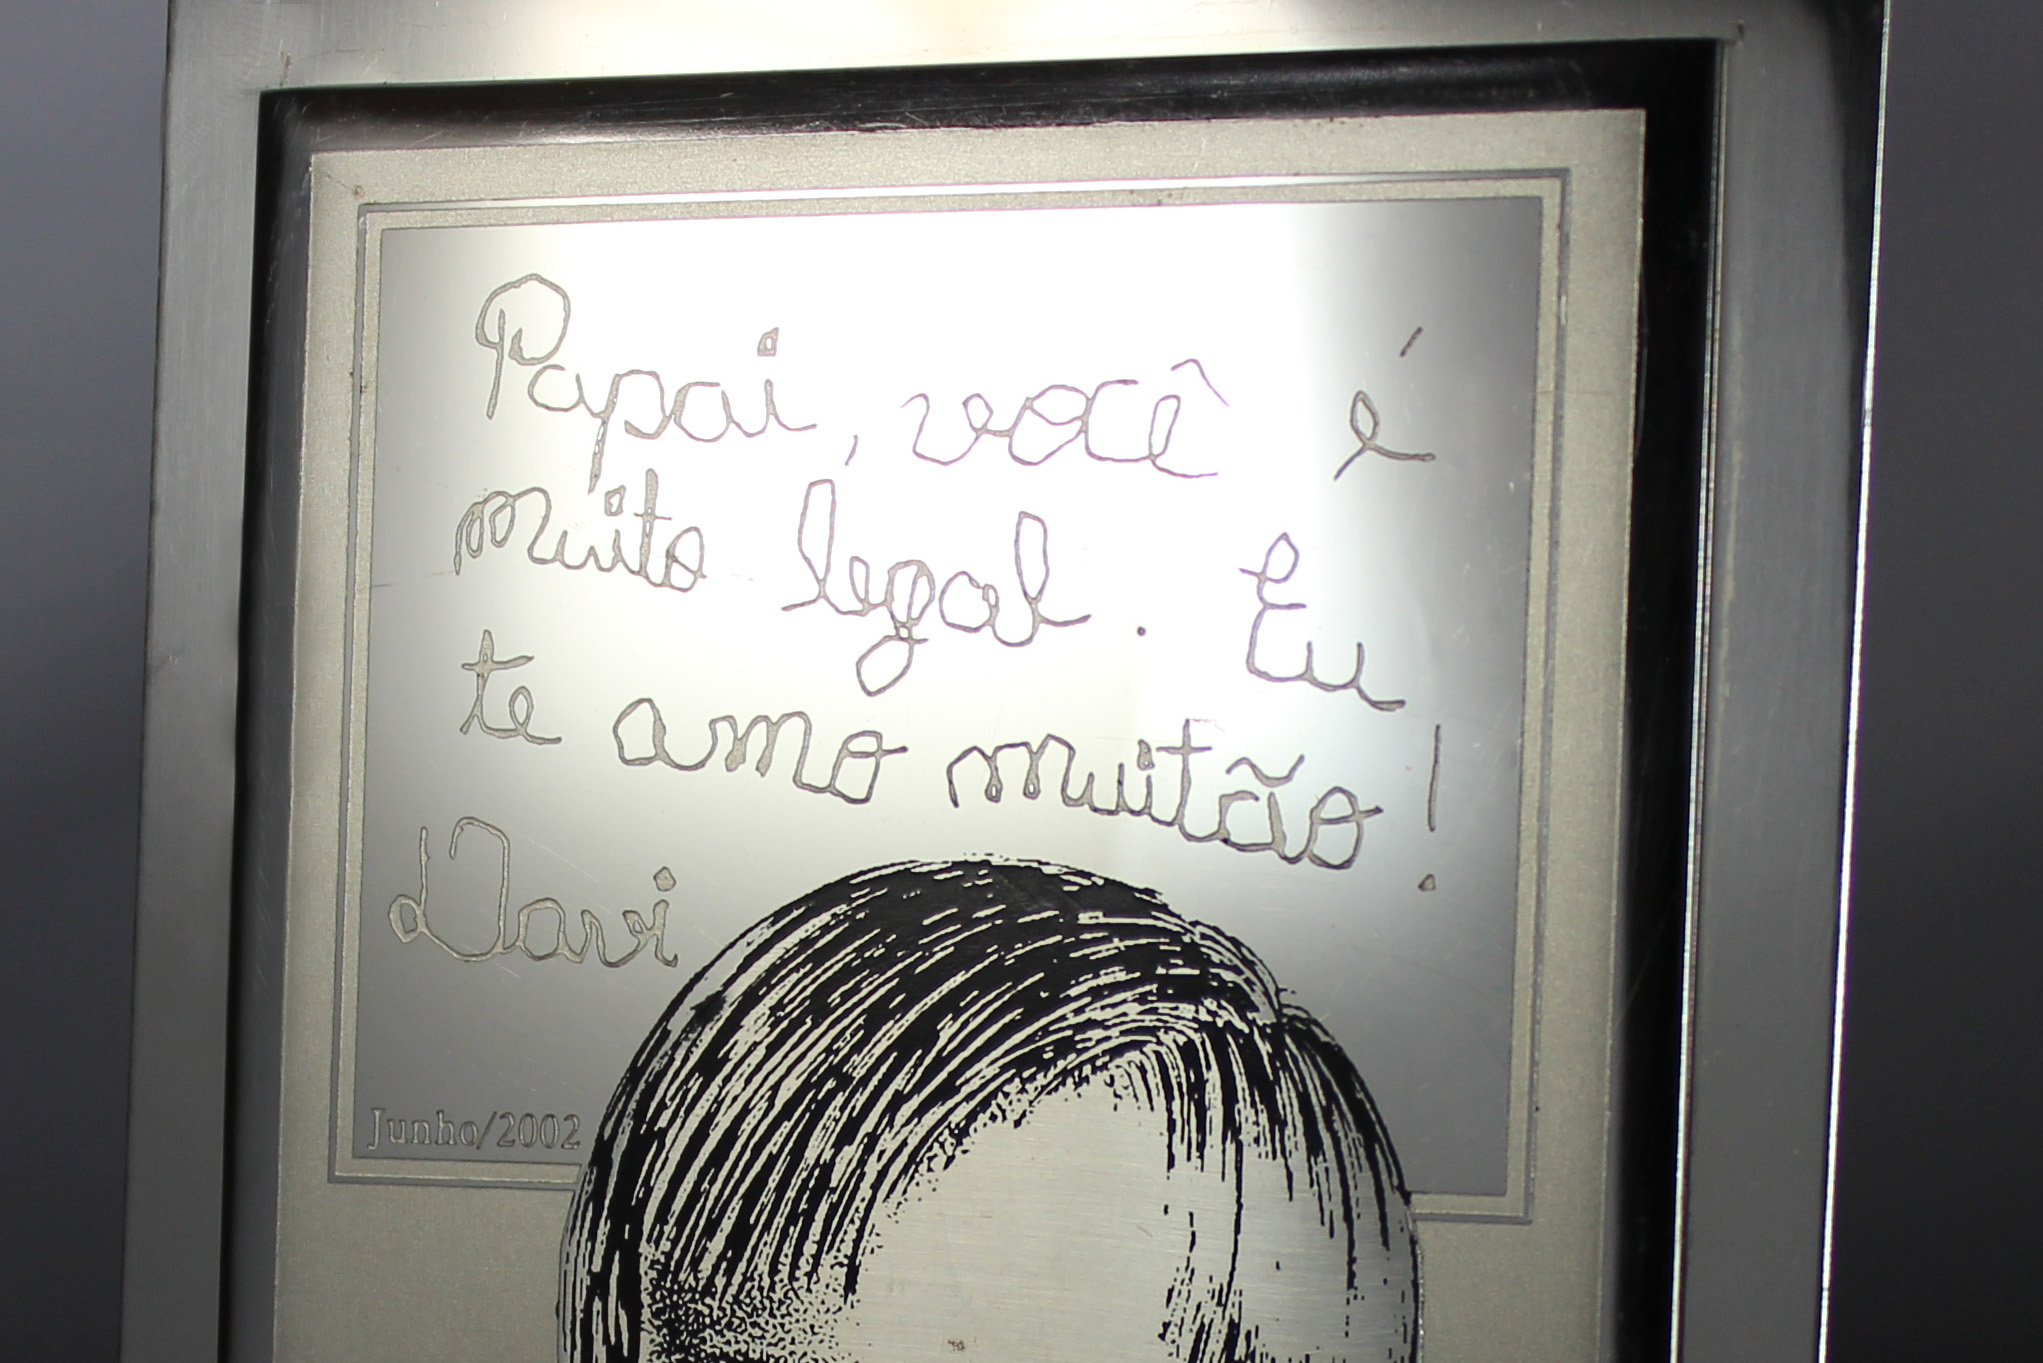 Papai, você é
muito legal. Eu
te amo muitão!
Davi
Junho/2002